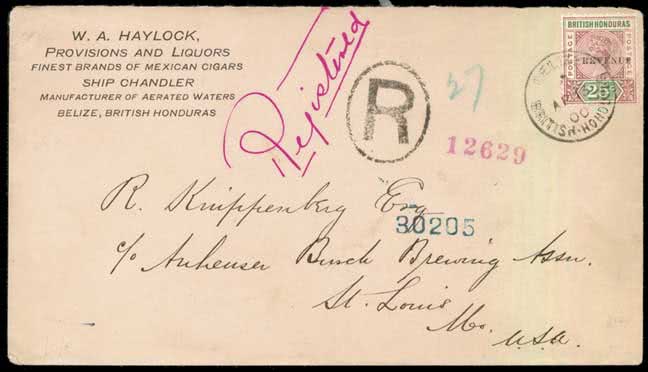 W. A. HAYLOCK,
PROVISIONS AND LIQUORS
FINEST BRANDS OF MEXICAN CIGARS
SHIP CHANDLER
MANUFACTURER OF AERATED WATERS
BELIZE, BRITISH HONDURAS
Registered
R
27
12629
BRITISH HONDURAS
POSTAGE
POSTAGE
REVENUE
25
BELIZE
AP
00
BRITISH-HONDURAS
R. Knippenberg Esq
30205
c/o Anheuser Busch Brewing Assn.
St. Louis
Mo.
U.S.a.